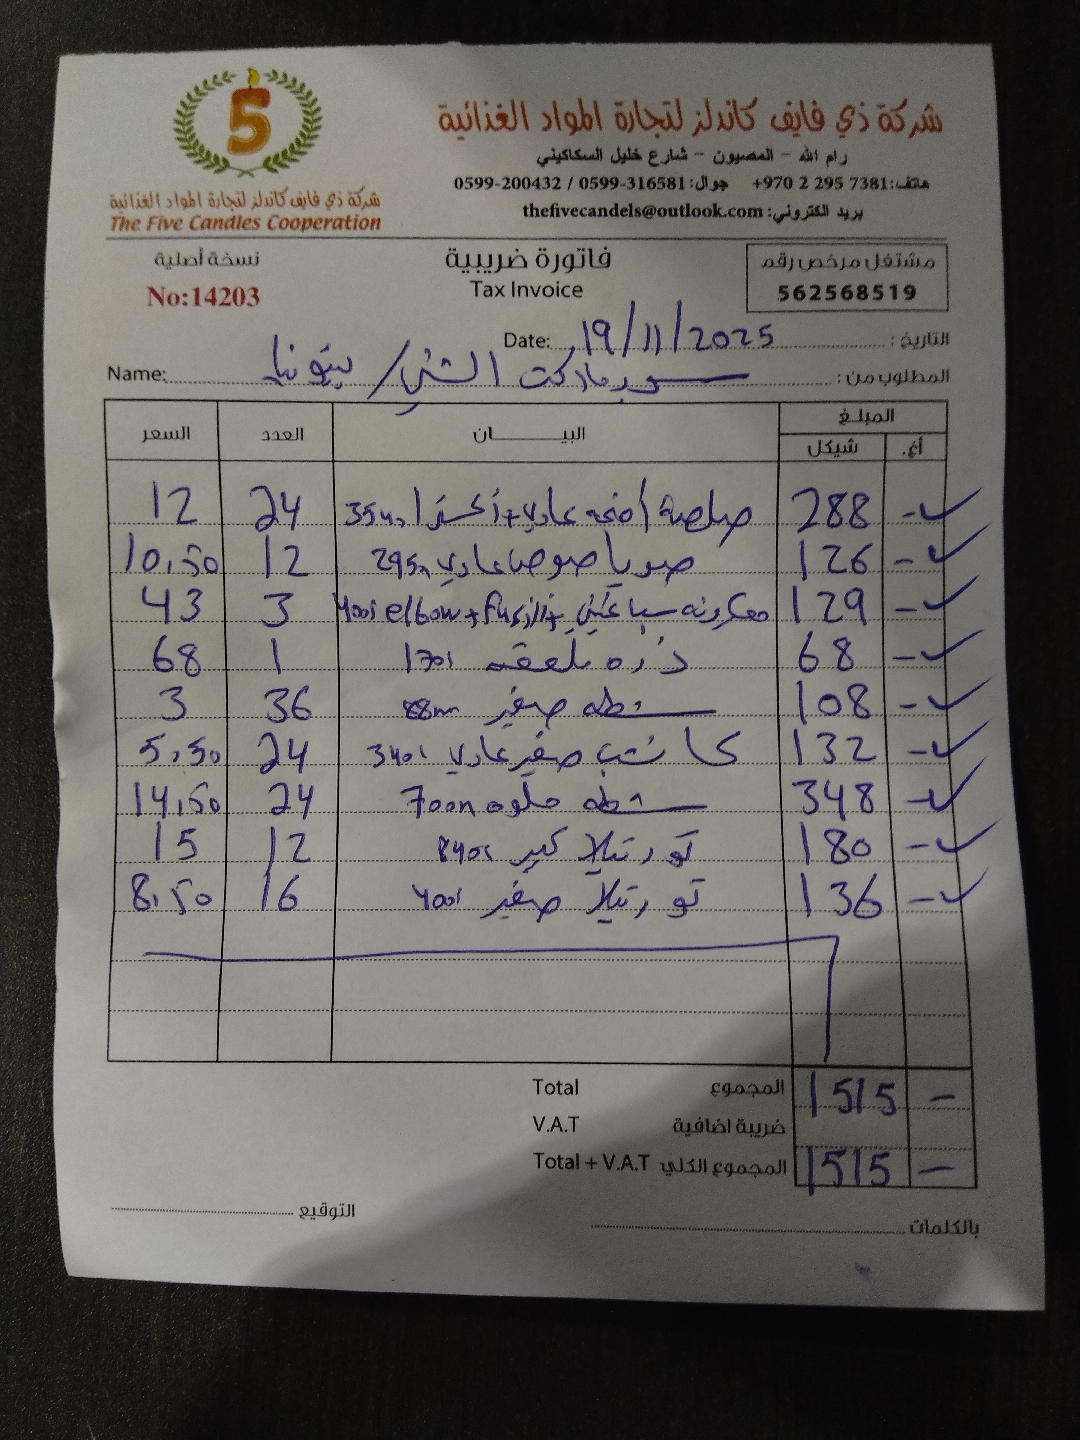 5
شركة ذي فايف كاندلز لتجارة المواد الغذائية
The Five Candles Cooperation
شركة ذي فايف كاندلز لتجارة المواد الغذائية
رام الله - المصيون - شارع خليل السكاكيني
هاتف: +970 2 295 7381 جوال: 0599-316581 / 0599-200432
بريد الكتروني: thefivecandels@outlook.com
نسخة أصلية
No:14203
فاتورة ضريبية
Tax Invoice
مشتغل مرخص رقم
562568519
التاريخ: Date: 19/11/2025
المطلوب من: سوبرماركت الشني / بيتونيا Name:
المبلغ البيـــان العدد السعر
أغ. شيكل
- 288 صلصة عادي + اكسترا 24 12
- 126 صويا صوص عادي 295m 12 10,50
- 129 معكرونه سباغيتي + fusilli + elbow 400g 3 43
- 68 ذره 1 68
- 108 شطه صغير 88m 36 3
- 132 كاتشب صغير عادي 340g 24 5,50
- 348 شطه حلوه 700m 24 14,50
- 180 تورتيلا كبير 840g 12 15
- 136 تورتيلا صغير 400g 16 8,50
المجموع Total 1515 -
ضريبة اضافية V.A.T
المجموع الكلي Total + V.A.T 1515 -
التوقيع
بالكلمات